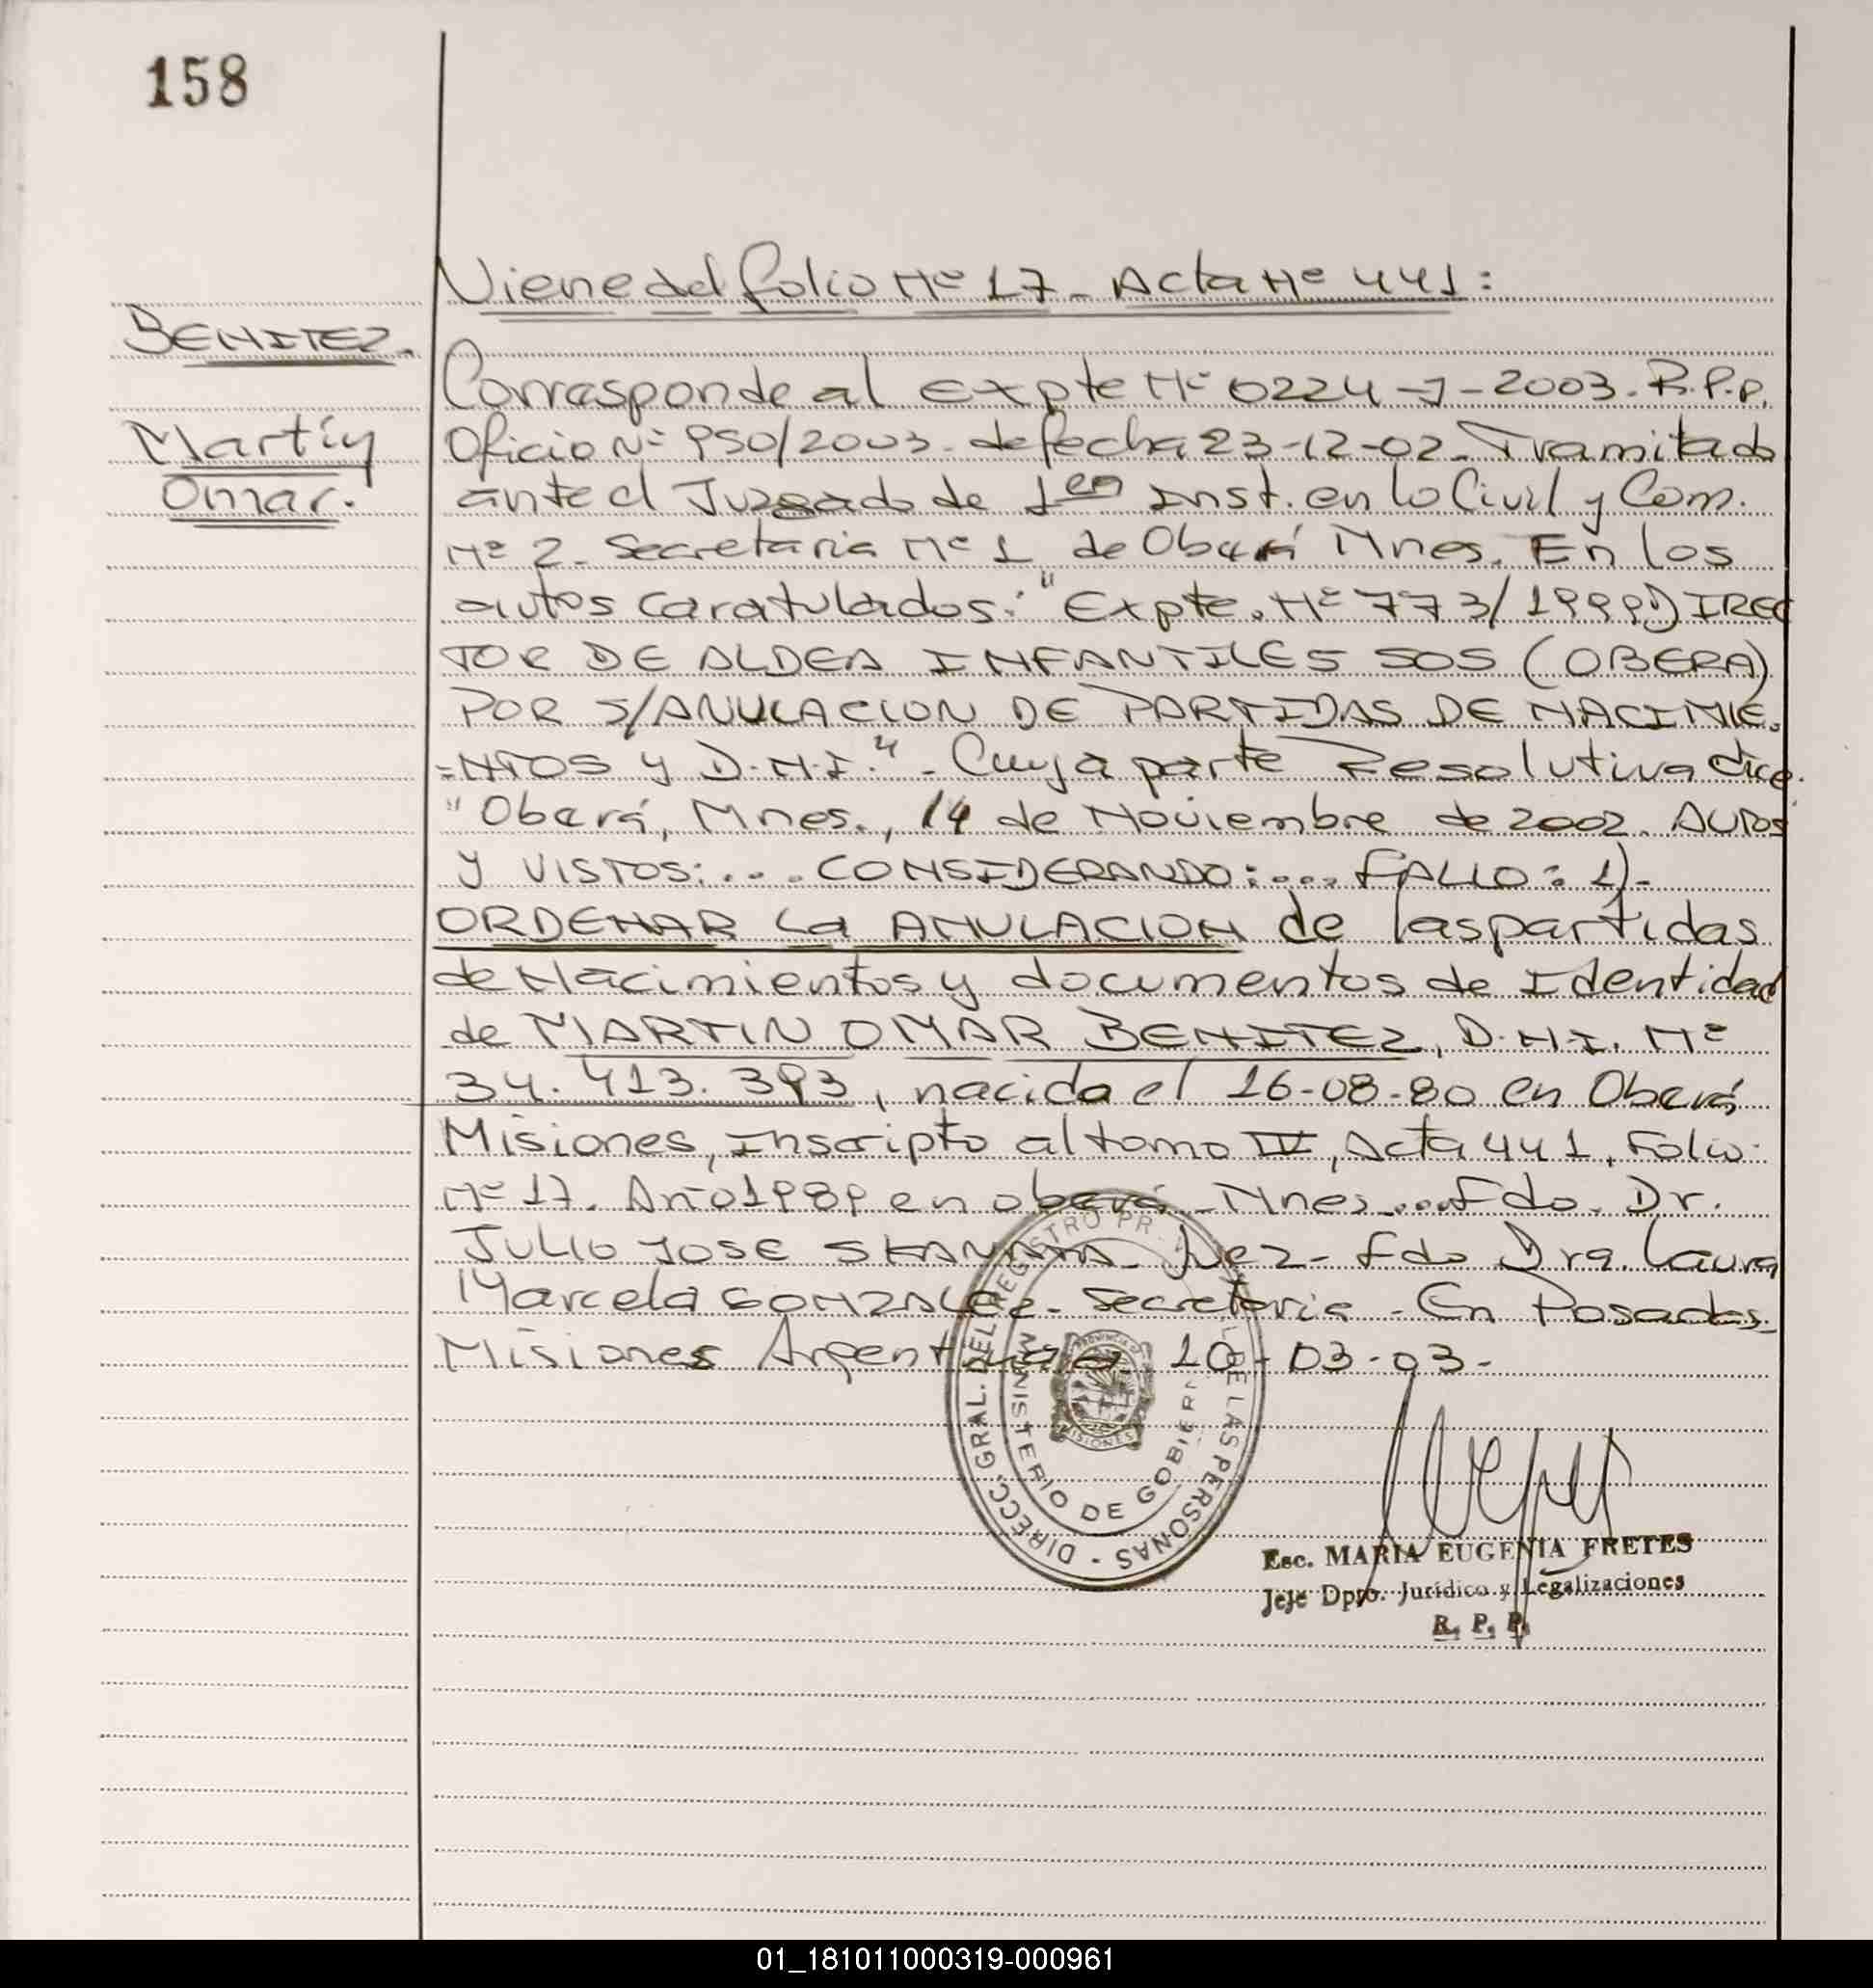 158
Viene del folio Nº 17 - Acta Nº 441:
BENITEZ.
Corresponde al Expte Nº 0224-J-2003. R.P.P.
Martín
Oficio Nº 950/2003. de fecha 23-12-02. Tramitado
Omar.
ante el Juzgado de 1era Inst. en lo Civil y Com.
Nº 2. Secretaria Nº 1 de Oberá Mnes. En los
autos caratulados: "Expte. Nº 773/1999 DIREC
TOR DE ALDEA INFANTILES SOS (OBERA)
POR S/ANULACION DE PARTIDAS DE NACIMIE.
=NTOS y D.N.I." - Cuya parte Resolutiva dice.
"Oberá, Mnes., 14 de Noviembre de 2002. AUTOS
Y VISTOS: .... CONSIDERANDO: .... FALLO: 1)-
ORDENAR La ANULACION de las partidas
de Nacimientos y documentos de Identidad
de MARTIN OMAR BENITEZ, D.N.I. Nº
34.413.393, nacida el 16-08-80 en Oberá
Misiones, Inscripto al tomo IV, Acta 441, Folio:
Nº 17. Año 1989 en oberá - Mnes ... Fdo. Dr.
JULIO JOSE Juez - Fdo Dra. Laura
Marcela GONZALEZ - Secretaria - En Posadas
Misiones Argentina a 10-03-03.-
DIRECC. GRAL. DEL REGISTRO PR DE LAS PERSONAS -
MINISTERIO DE GOBIER
PROVINCIA D
MISIONES
Esc. MARIA EUGENIA FRETES
Jefe Dpto. Jurídico y Legalizaciones
R. P. P.
01_181011000319-000961